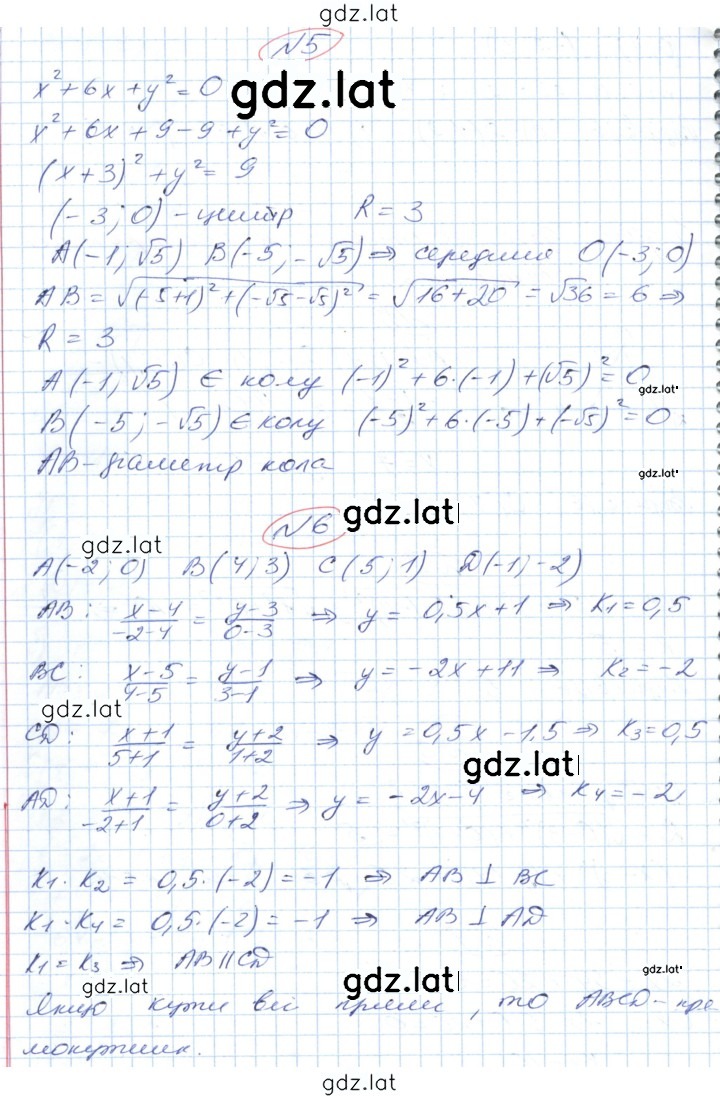 gdz.lat
N5
x² + 6x + y² = 0
gdz.lat
x² + 6x + 9 - 9 + y² = 0
(x + 3)² + y² = 9
(-3; 0) - центр R = 3
A(-1; √5) B(-5; -√5) ⇒ середина O(-3; 0)
AB = √((-5+1)² + (-√5-√5)²) = √(16+20) = √36 = 6 ⇒
R = 3
A(-1; √5) Є колу (-1)² + 6·(-1) + (√5)² = 0
gdz.lat
B(-5; -√5) Є колу (-5)² + 6·(-5) + (-√5)² = 0
AB - діаметр кола
gdz.lat
N6
gdz.lat
gdz.lat
A(-2; 0) B(4; 3) C(5; 1) D(-1; -2)
AB: (x-4)/(-2-4) = (y-3)/(0-3) ⇒ y = 0,5x + 1 ⇒ K1 = 0,5
BC: (x-5)/(4-5) = (y-1)/(3-1) ⇒ y = -2x + 11 ⇒ K2 = -2
gdz.lat
CD: (x+1)/(5+1) = (y+2)/(1+2) ⇒ y = 0,5x - 1,5 ⇒ K3 = 0,5
gdz.lat
AD: (x+1)/(-2+1) = (y+2)/(0+2) ⇒ y = -2x - 4 ⇒ K4 = -2
K1 · K2 = 0,5·(-2) = -1 ⇒ AB ⊥ BC
K1 · K4 = 0,5·(-2) = -1 ⇒ AB ⊥ AD
K1 = K3 ⇒ AB || CD
gdz.lat
gdz.lat
gdz.lat
Якщо кути всі прямі, то ABCD - пря
мокутник.
gdz.lat